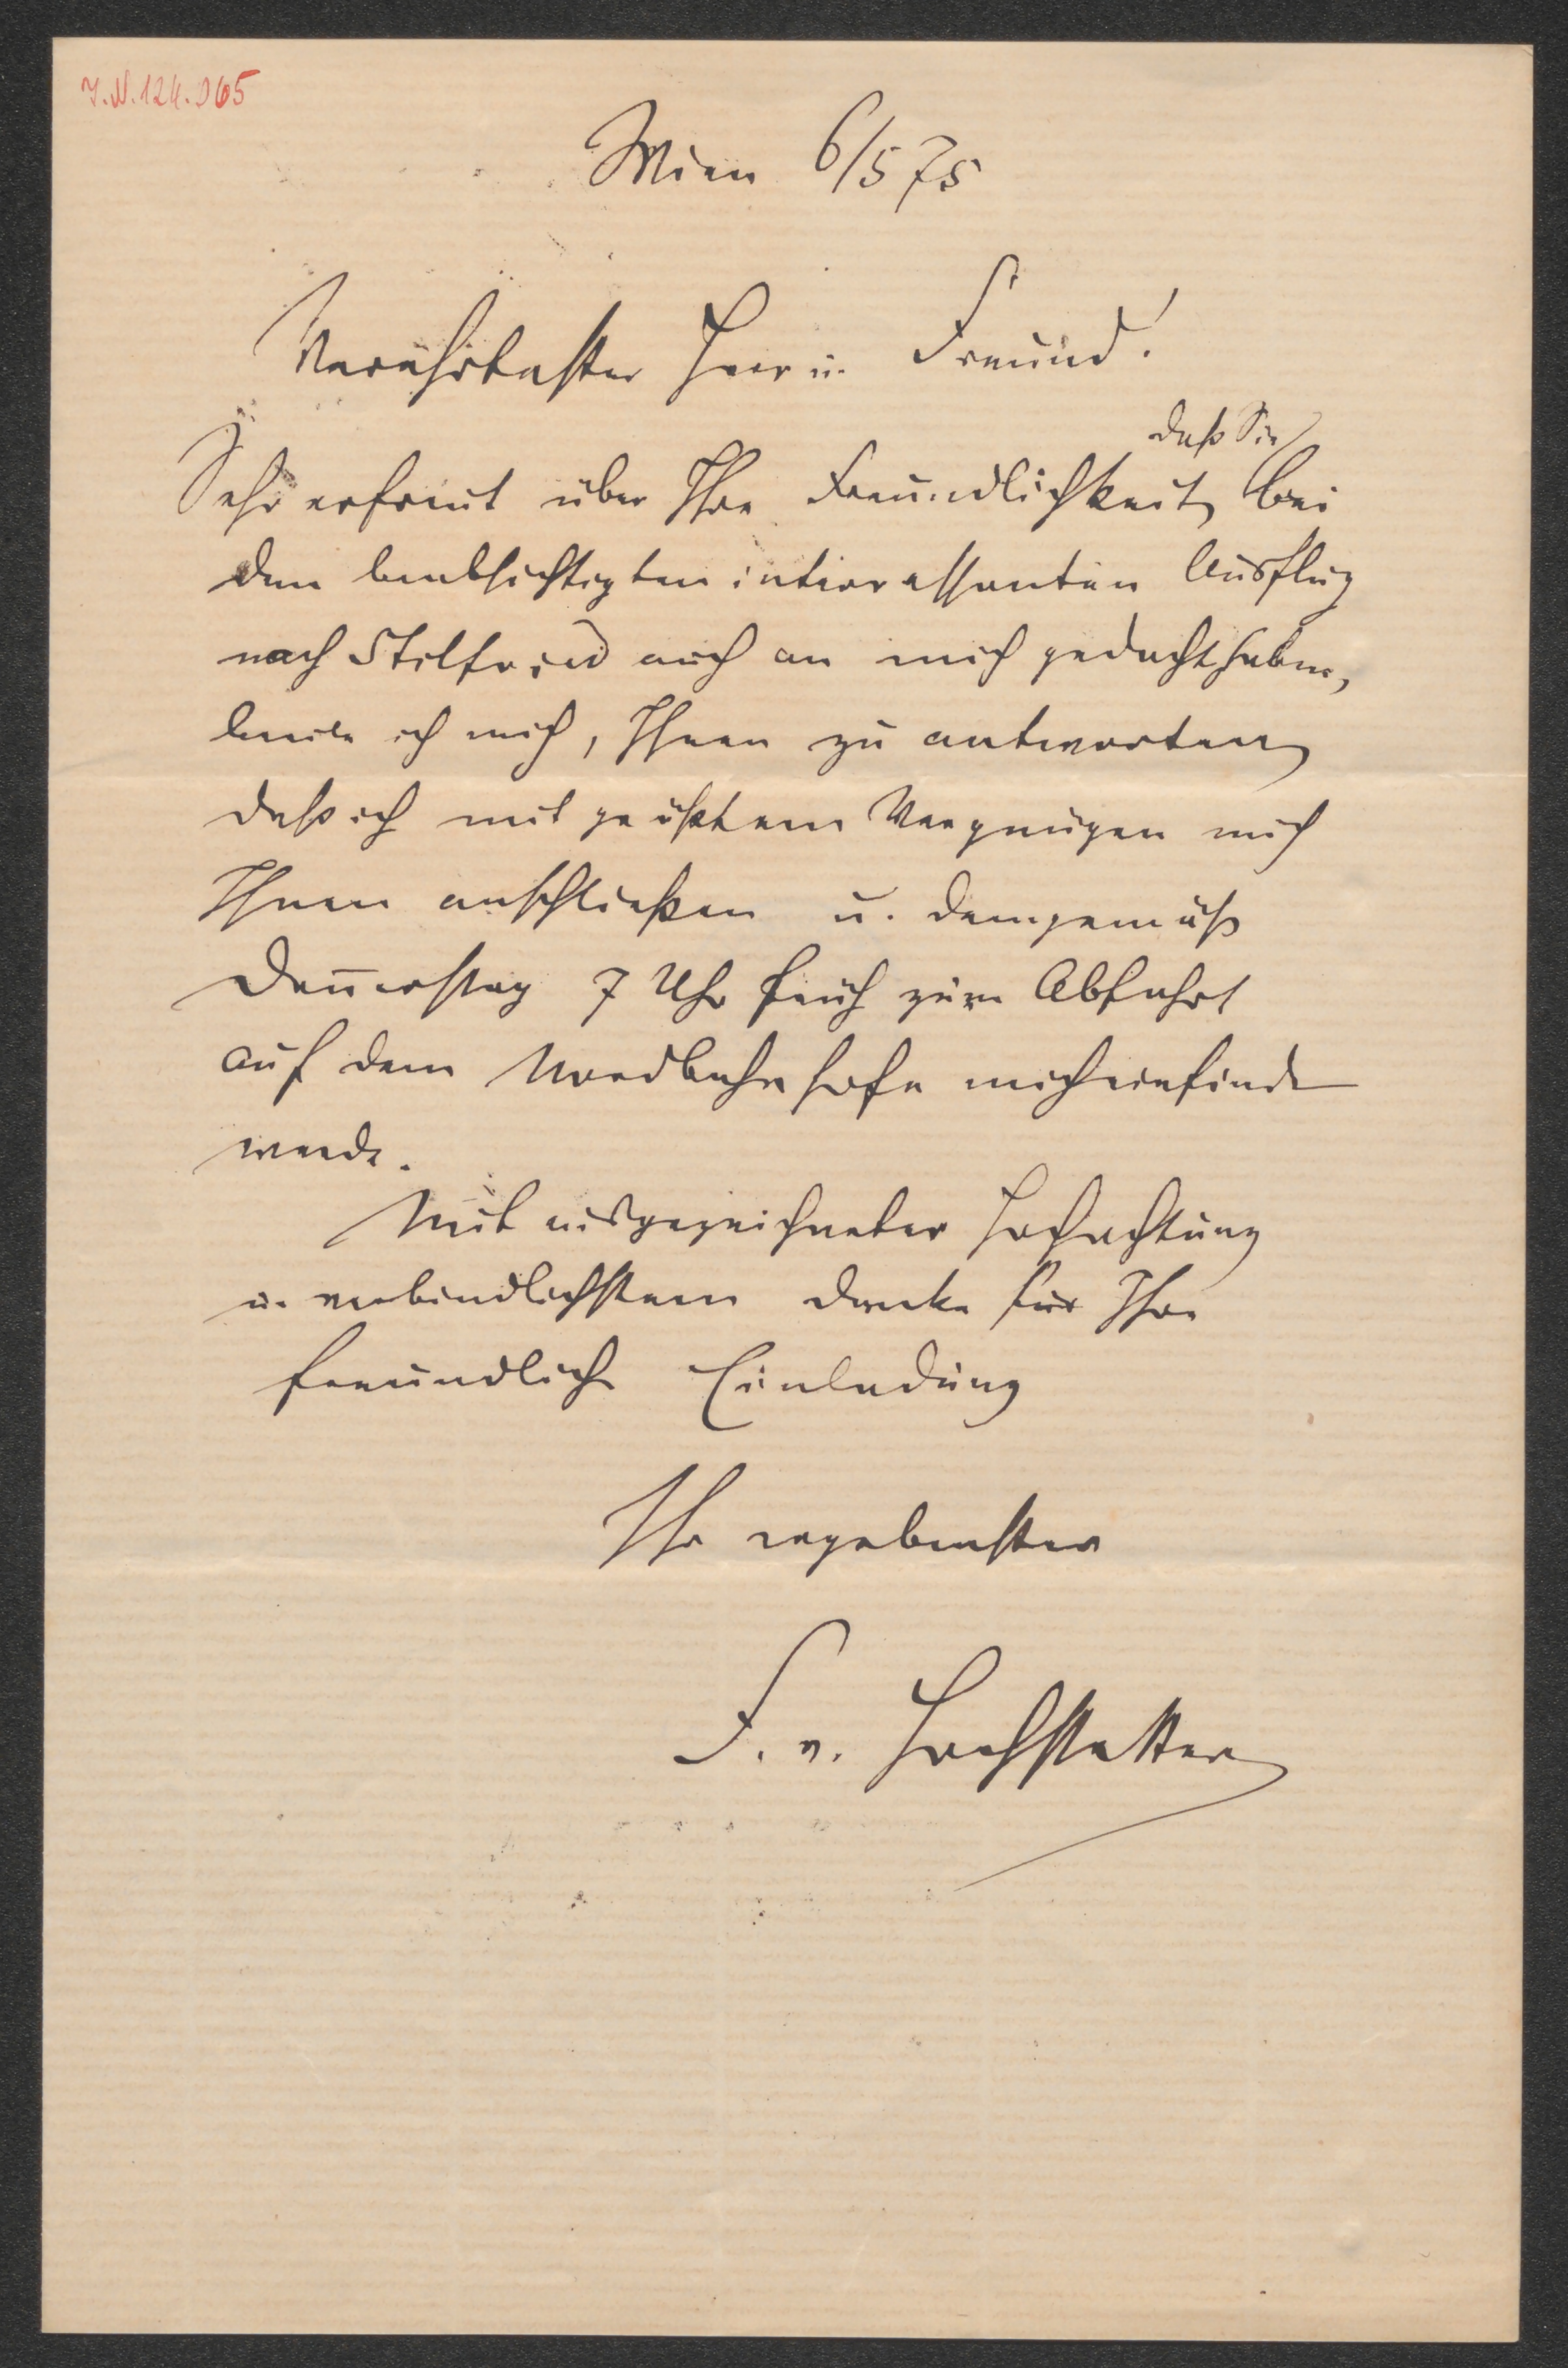 J.N. 124.065
Wien 6/5 75
Verehrtester Herr u. Freund!
daß Sie
Sehr erfreut über Ihre Freundlichkeit, bei
dem beabsichtigten interessanten Ausflug
nach Stilfried auch an mich gedacht haben,
beeile ich mich, Ihnen zu antworten
daß ich mit größtem Vergnügen mich
Ihnen anschließen u. demgemäß
Donnerstag 7 Uhr früh zum Abfahrt
auf dem Nordbahnhofe mich einfinden
werde.
Mit ausgezeichneter Hochachtung
u. verbindlichstem Danke für Ihre
freundliche Einladung
Ihr ergebenster
F. v. Hochstetter